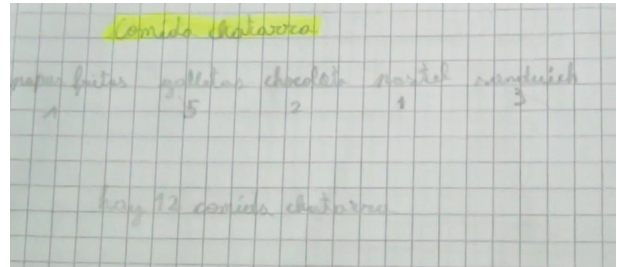 comida chatarra
papas fritas galletas chocolate pastel sandwich
1 5 2 1 3
hay 12 comida chatarra